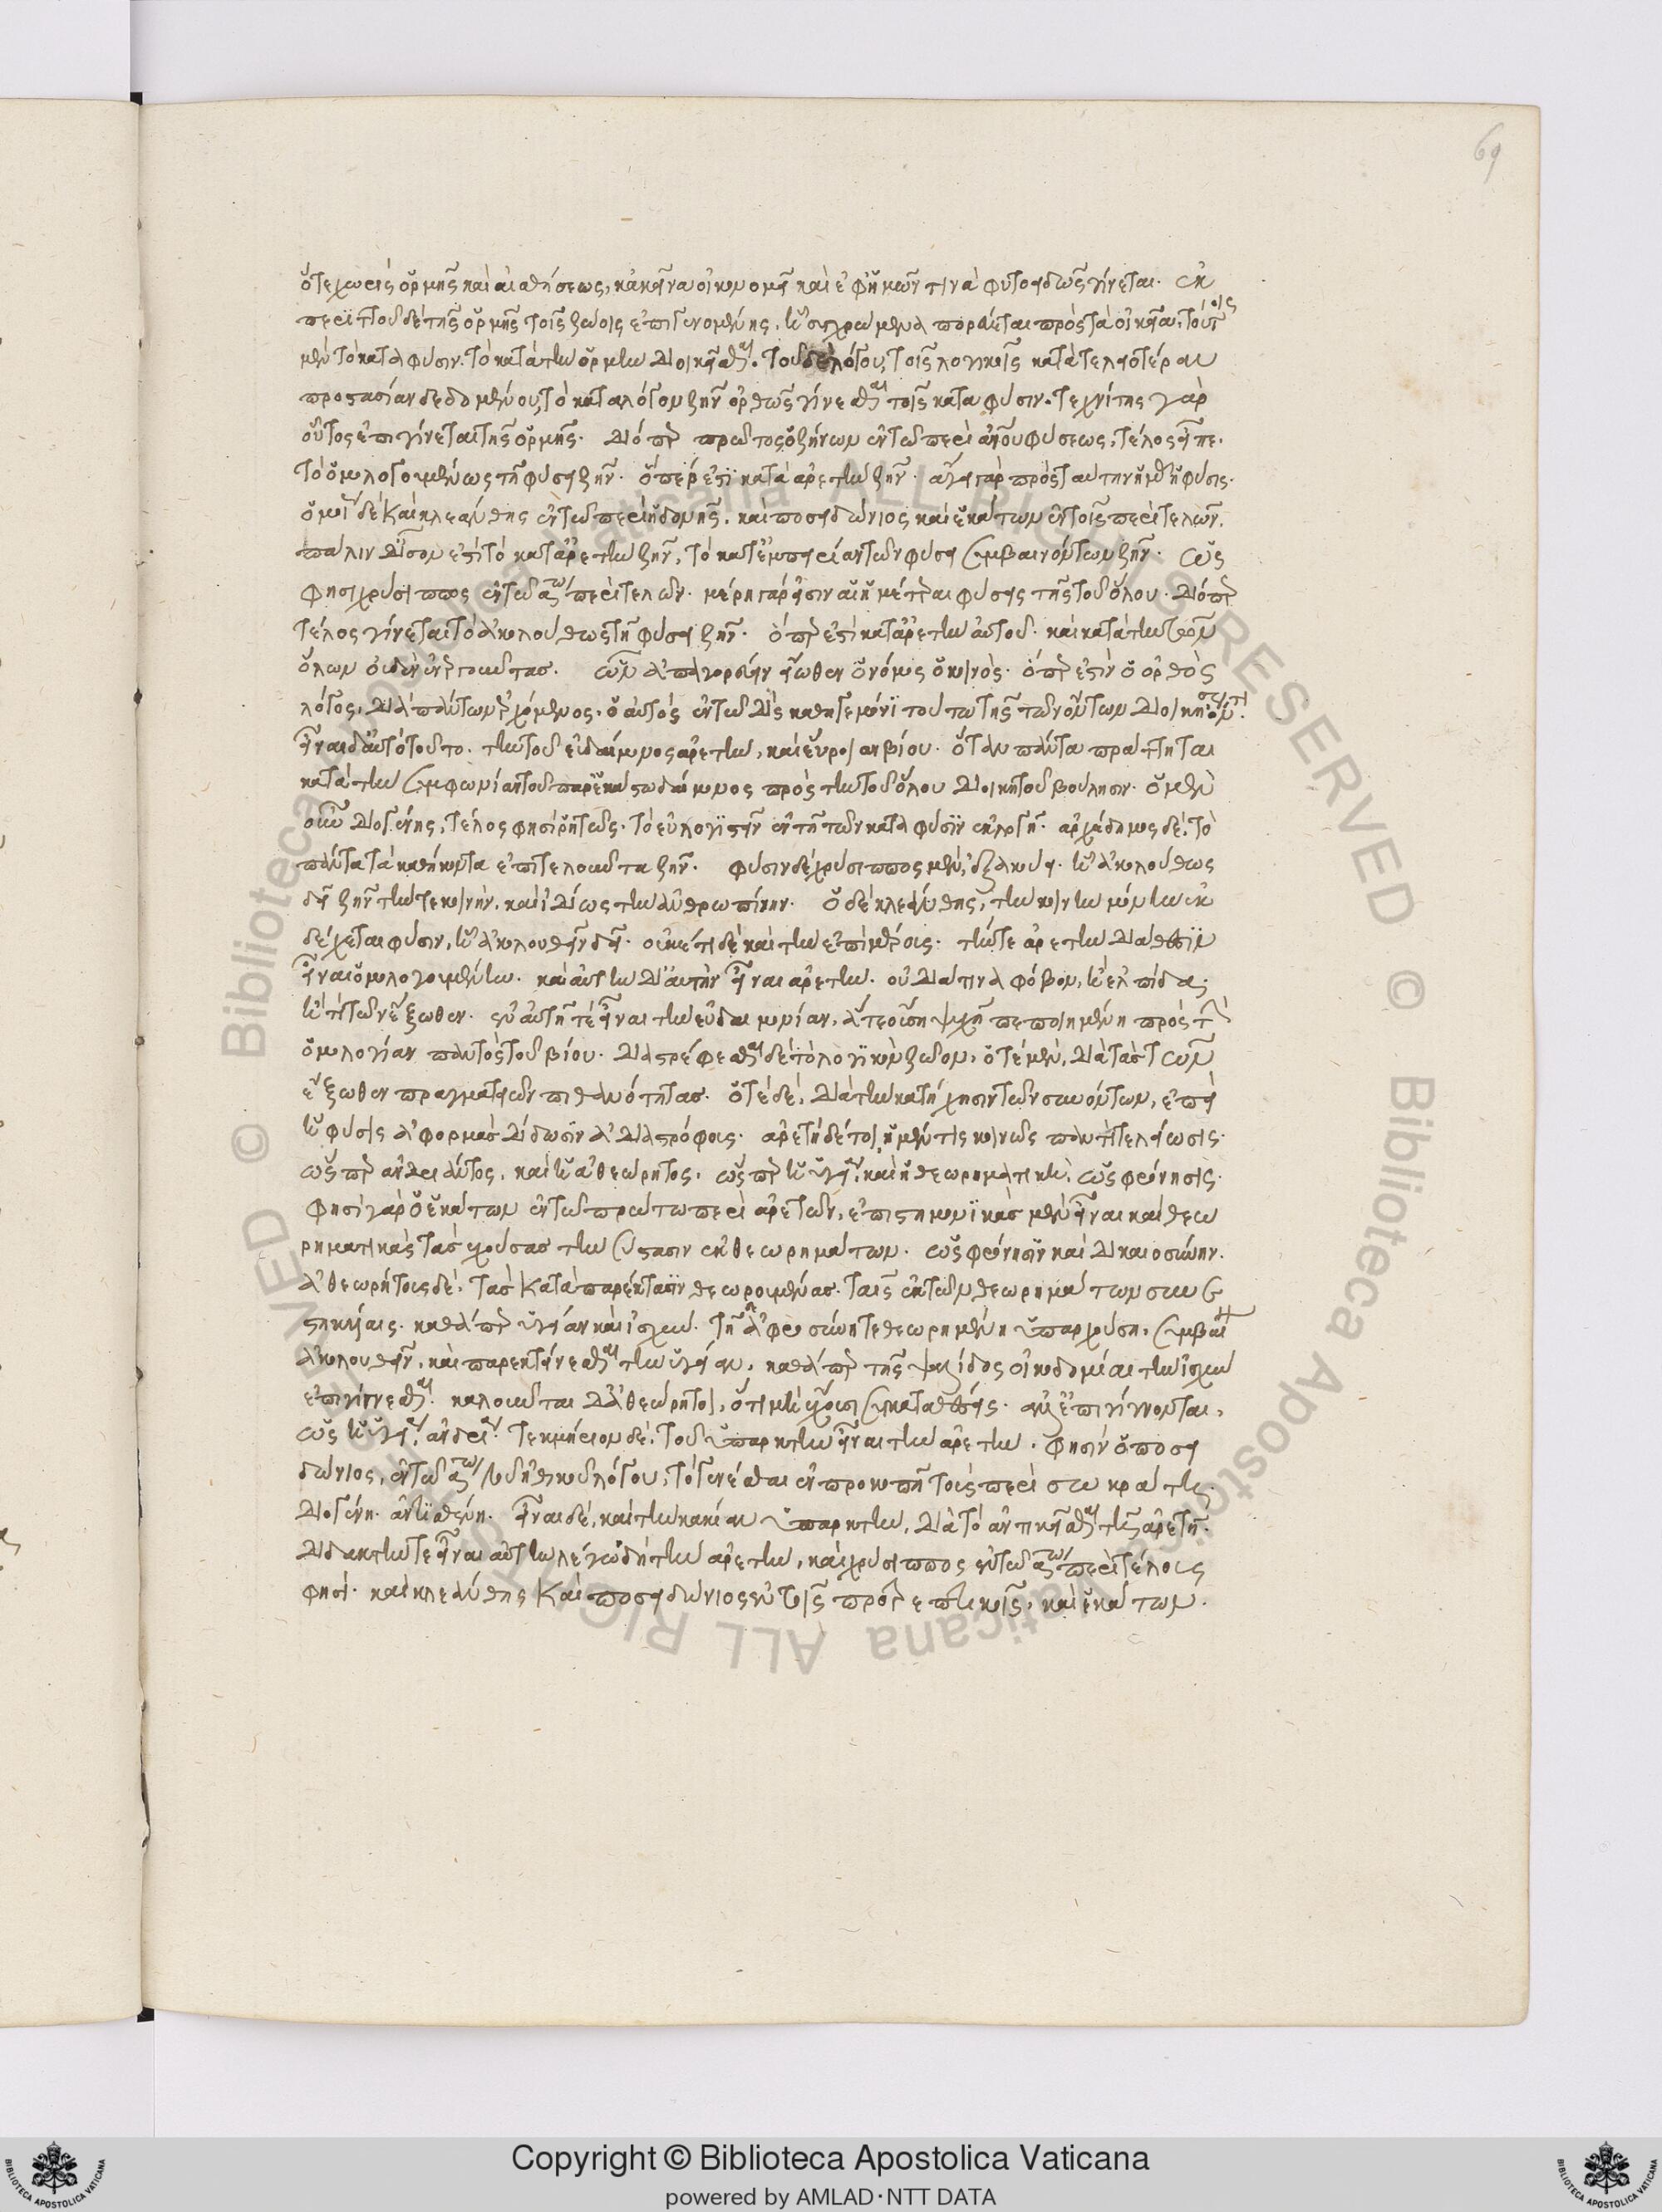 69
ὅτε χωρὶς ὁρμῆς καὶ αἰσθήσεως, κἀκεῖνα οἰκονομεῖ καὶ ἐφ' ἡμῶν τινὰ φυτοειδῶς γίνεται. ἐκ
περιττοῦ δὲ τῆς ὁρμῆς τοῖς ζώοις ἐπιγενομένης, ᾗ συγχρώμενα πορεύεται πρὸς τὰ οἰκεῖα, τούτοις
μὲν τὸ κατὰ φύσιν. τὸ κατὰ τὴν ὁρμὴν διοικεῖσθαι. τοῦ δὲ λόγου τοῖς λογικοῖς κατὰ τελειοτέραν
προστασίαν δεδομένου, τὸ κατὰ λόγον ζῆν ὀρθῶς γίνεσθαι τοῖς κατα φύσιν. τεχνίτης γὰρ
οὗτος ἐπιγίνεται τῆς ὁρμῆς. διόπερ πρῶτος ὁ ζήνων ἐν τῷ περὶ ἀνου φύσεως, τέλος εἶπε.
τὸ ὁμολογουμένως τῇ φύσει ζῆν. ὅπερ ἐστὶ κατὰ ἀρετὴν ζῆν. ἄγει γὰρ πρὸς ταύτην ἡμᾶς ἡ φύσις.
ὁμοίως δὲ καὶ κλεάνθης ἐν τῷ περὶ ἡδονῆς, καὶ ποσειδώνιος καὶ ἑκάτων ἐν τοῖς περὶ τελῶν.
πάλιν δ' ἴσον ἐστὶ τὸ κατ' ἀρετὴν ζῆν, τὸ κατ' ἐμπειρίαν τῶν φύσει συμβαινόντων ζῆν. ὥς
φησι χρύσιππος ἐν τῷ αω περὶ τελῶν. μέρη γάρ εἰσιν αἱ ἡμέτεραι φύσεις τῆς τοῦ ὅλου. διόπερ
τέλος γίνεται τὸ ἀκολούθως τῇ φύσει ζῆν. ὅπερ ἐστὶ κατ' ἀρετὴν αὐτοῦ. καὶ κατὰ τὴν τῶν
ὅλων οὐδὲν ἐνεργοῦντας. ὧν ἀπαγορεύειν εἴωθεν ὁ νόμος ὁ κοινὸς. ὅπερ ἐστὶν ὁ ὀρθὸς
λόγος, διὰ πάντων ἐρχόμενος, ὁ αὐτὸς ἐν τῷ διὶ καθηγεμόνι τούτῳ τῆς τῶν ὄντων διοικήσεως ὄντι.
εἶναι δ' αὐτὸ τοῦτο. τὴν τοῦ εὐδαίμονος ἀρετὴν, καὶ εὔροιαν βίου. ὅταν πάντα πράττηται
κατὰ τὴν συμφωνίαν τοῦ παρ' ἑκάστῳ δαίμονος πρὸς τὴν τοῦ ὅλου διοικητοῦ βούλησιν. ὁ μὲν
οὖν διογένης, τέλος φησὶ ῥητῶς. τὸ εὐλογιστεῖν ἐν τῇ τῶν κατὰ φύσιν ἐκλογῇ. ἀρχέδημος δὲ, τὸ
πάντα τὰ καθήκοντα ἐπιτελοῦντα ζῆν. φύσιν δὲ χρύσιππος μὲν, ἐξακούει. ᾗ ἀκολούθως
δεῖ ζῆν τήν τε κοινὴν, καὶ ἰδίως τὴν ἀνθρωπίνην. ὁ δὲ κλεάνθης, τὴν κοινὴν μόνην ἐκ
δέχεται φύσιν, ᾗ ἀκολουθεῖν δεῖ. οὐκέτι δὲ καὶ τὴν ἐπὶ μέροις. τήν τε ἀρετὴν διάθεσιν
εἶναι ὁμολογουμένην. καὶ αὐτὴν δι' αὑτὴν εἶναι αἱρετὴν. οὐ διά τινα φόβον, ἢ ἐλπίδα,
ἤ τι τῶν ἔξωθεν. ἐν αὐτῇ τὲ εἶναι τὴν εὐδαιμονίαν, ἅτε οὔσῃ ψυχῇ πεποιημένῃ πρὸς τὴν
ὁμολογίαν παντὸς τοῦ βίου. διαστρέφεσθαι δὲ τὸ λογικὸν ζῶον, ὁτὲ μὲν, διὰ τὰς τῶν
ἔξωθεν πραγματειῶν πιθανότητας. ὁτὲ δὲ, διὰ τὴν κατήχησιν τῶν συνόντων, ἐπεὶ
ἡ φύσις ἀφορμὰς δίδωσιν ἀδιαστρόφοις. ἀρετὴ δέ τοι, ἡ μέν τις κοινῶς παντὶ τελείωσις.
ὥσπερ ἀνδριάντος, καὶ ἡ ἀθεώρητος, ὥσπερ ἡ ὑγεία, καὶ ἡ θεωρηματικὴ, ὡς φρόνησις.
φησὶ γὰρ ὁ ἑκάτων ἐν τῷ πρώτῳ περὶ ἀρετῶν, ἐπιστημονικὰς μὲν εἶναι καὶ θεω
ρηματικὰς τὰς ἐχούσας τὴν σύστασιν ἐκ θεωρημάτων. ὡς φρόνησιν καὶ δικαιοσύνην.
ἀθεωρήτοις δὲ, τὰς κατὰ παρέκτασιν θεωρουμένας. ταῖς ἐκ τῶν θεωρημάτων συνε
στηκυίαις. καθάπερ ὑγείαν καὶ ἰσχύν. τῇ σωφροσύνῃ τεθεωρημένῃ ὑπαρχούσῃ, συμβαίνει
ἀκολουθεῖν, καὶ παρεκτείνεσθαι τὴν ὑγείαν, καθάπερ τῆς ψαλίδος οἰκοδομίαι τὴν ἰσχὺν
ἐπιγίνεσθαι. καλοῦνται δ' ἀθεώρητοι, ὅτι μὴ ἔχουσι συγκαταθέσεις. ἀλλ' ἐπιγίννονται,
ὡς ἡ ὑγεία, ἀνδρεία. τεκμήριον δὲ, τοῦ ὑπαρκτὴν εἶναι τὴν ἀρετὴν, φησὶν ὁ ποσει
δώνιος, ἐν τῷ αω τοῦ ἠθικοῦ λόγου, τὸ γενέσθαι ἐν προκοπῇ τοὺς περὶ σωκράτη.
διογένη. ἀντισθένη. εἶναι δὲ, καὶ τὴν κακίαν ὑπαρκτὴν, διὰ τὸ ἀντικεῖσθαι τῇ ἀρετῇ.
διδακτήν τε εἶναι αὐτὴν λέγω δὴ τὴν ἀρετὴν, καὶ χρύσιππος ἐν τῷ αω περὶ τέλους
φησί. καὶ κλεάνθης καὶ ποσειδώνιος ἐν τοῖς προτρεπτικοῖς, καὶ ἑκάτων.
Copyright © Biblioteca Apostolica Vaticana
powered by AMLAD·NTT DATA